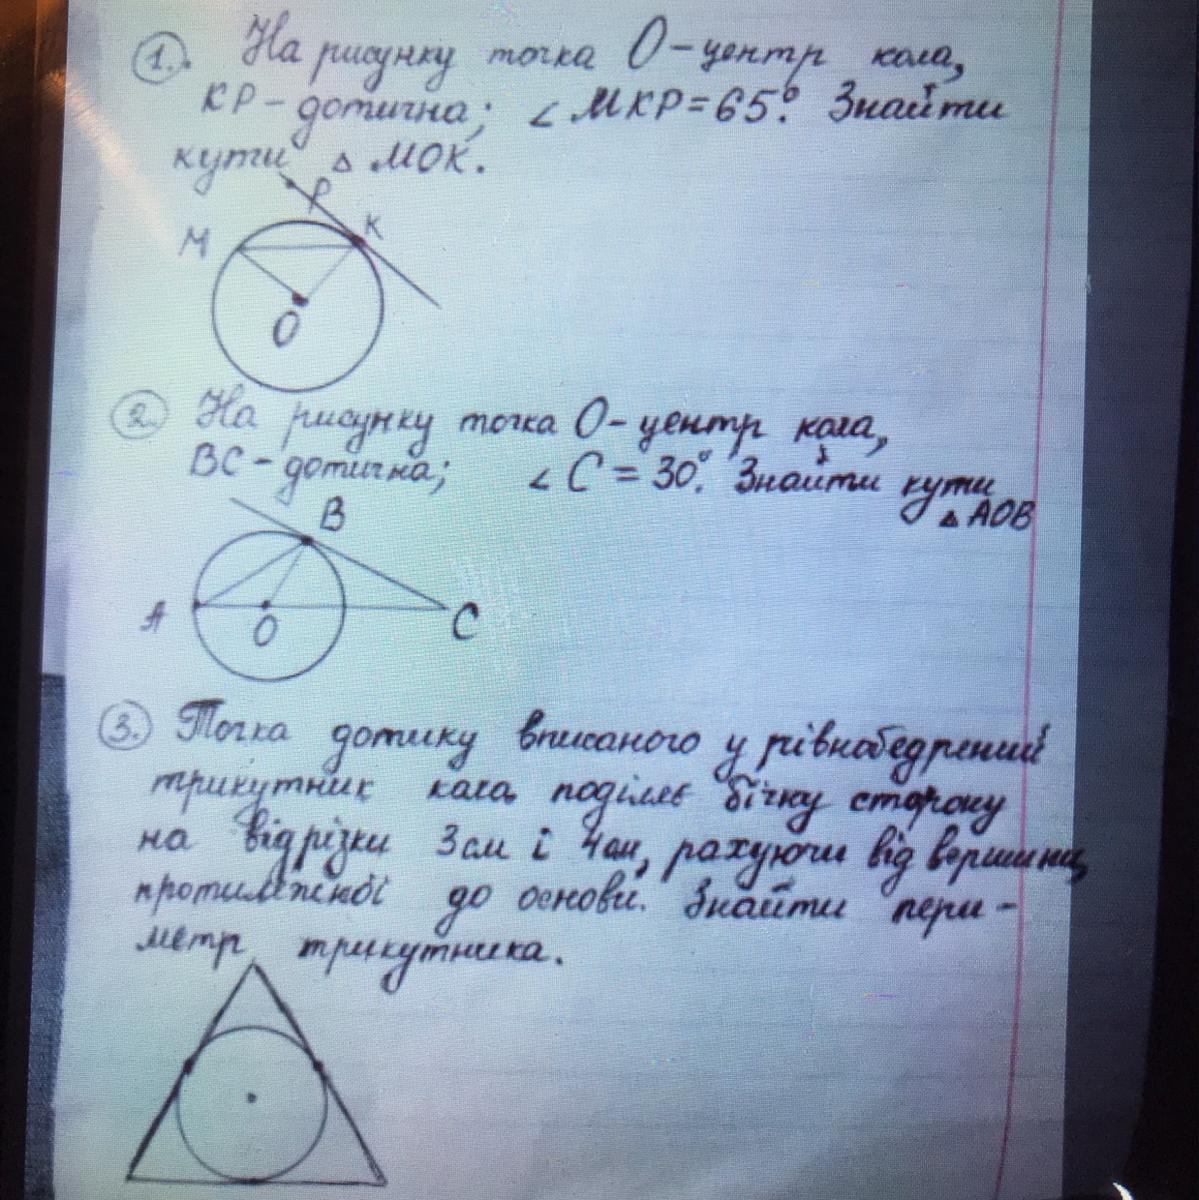 1. На рисунку точка О-центр кола,
КР-дотична; ∠МКР=65°. Знайти
кути △ МОК.
Р
М
К
О
2. На рисунку точка О-центр кола,
ВС-дотична; ∠С=30°. Знайти кути
△АОВ
В
А
О
С
3. Точка дотику вписаного у рівнобедрений
трикутник кола поділяє бічну сторону
на відрізки 3см і 4см, рахуючи від вершини,
протилежної до основи. Знайти пери-
метр трикутника.